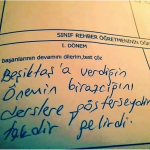 SINIF REHBER ÖĞRETMENİNİN
I. DÖNEM
başarılarının devamını dilerim,test çöz
Beşiktaş'a verdiğin
Önemin birazcığını
derslere gösterseydin
Takdir gelirdi.